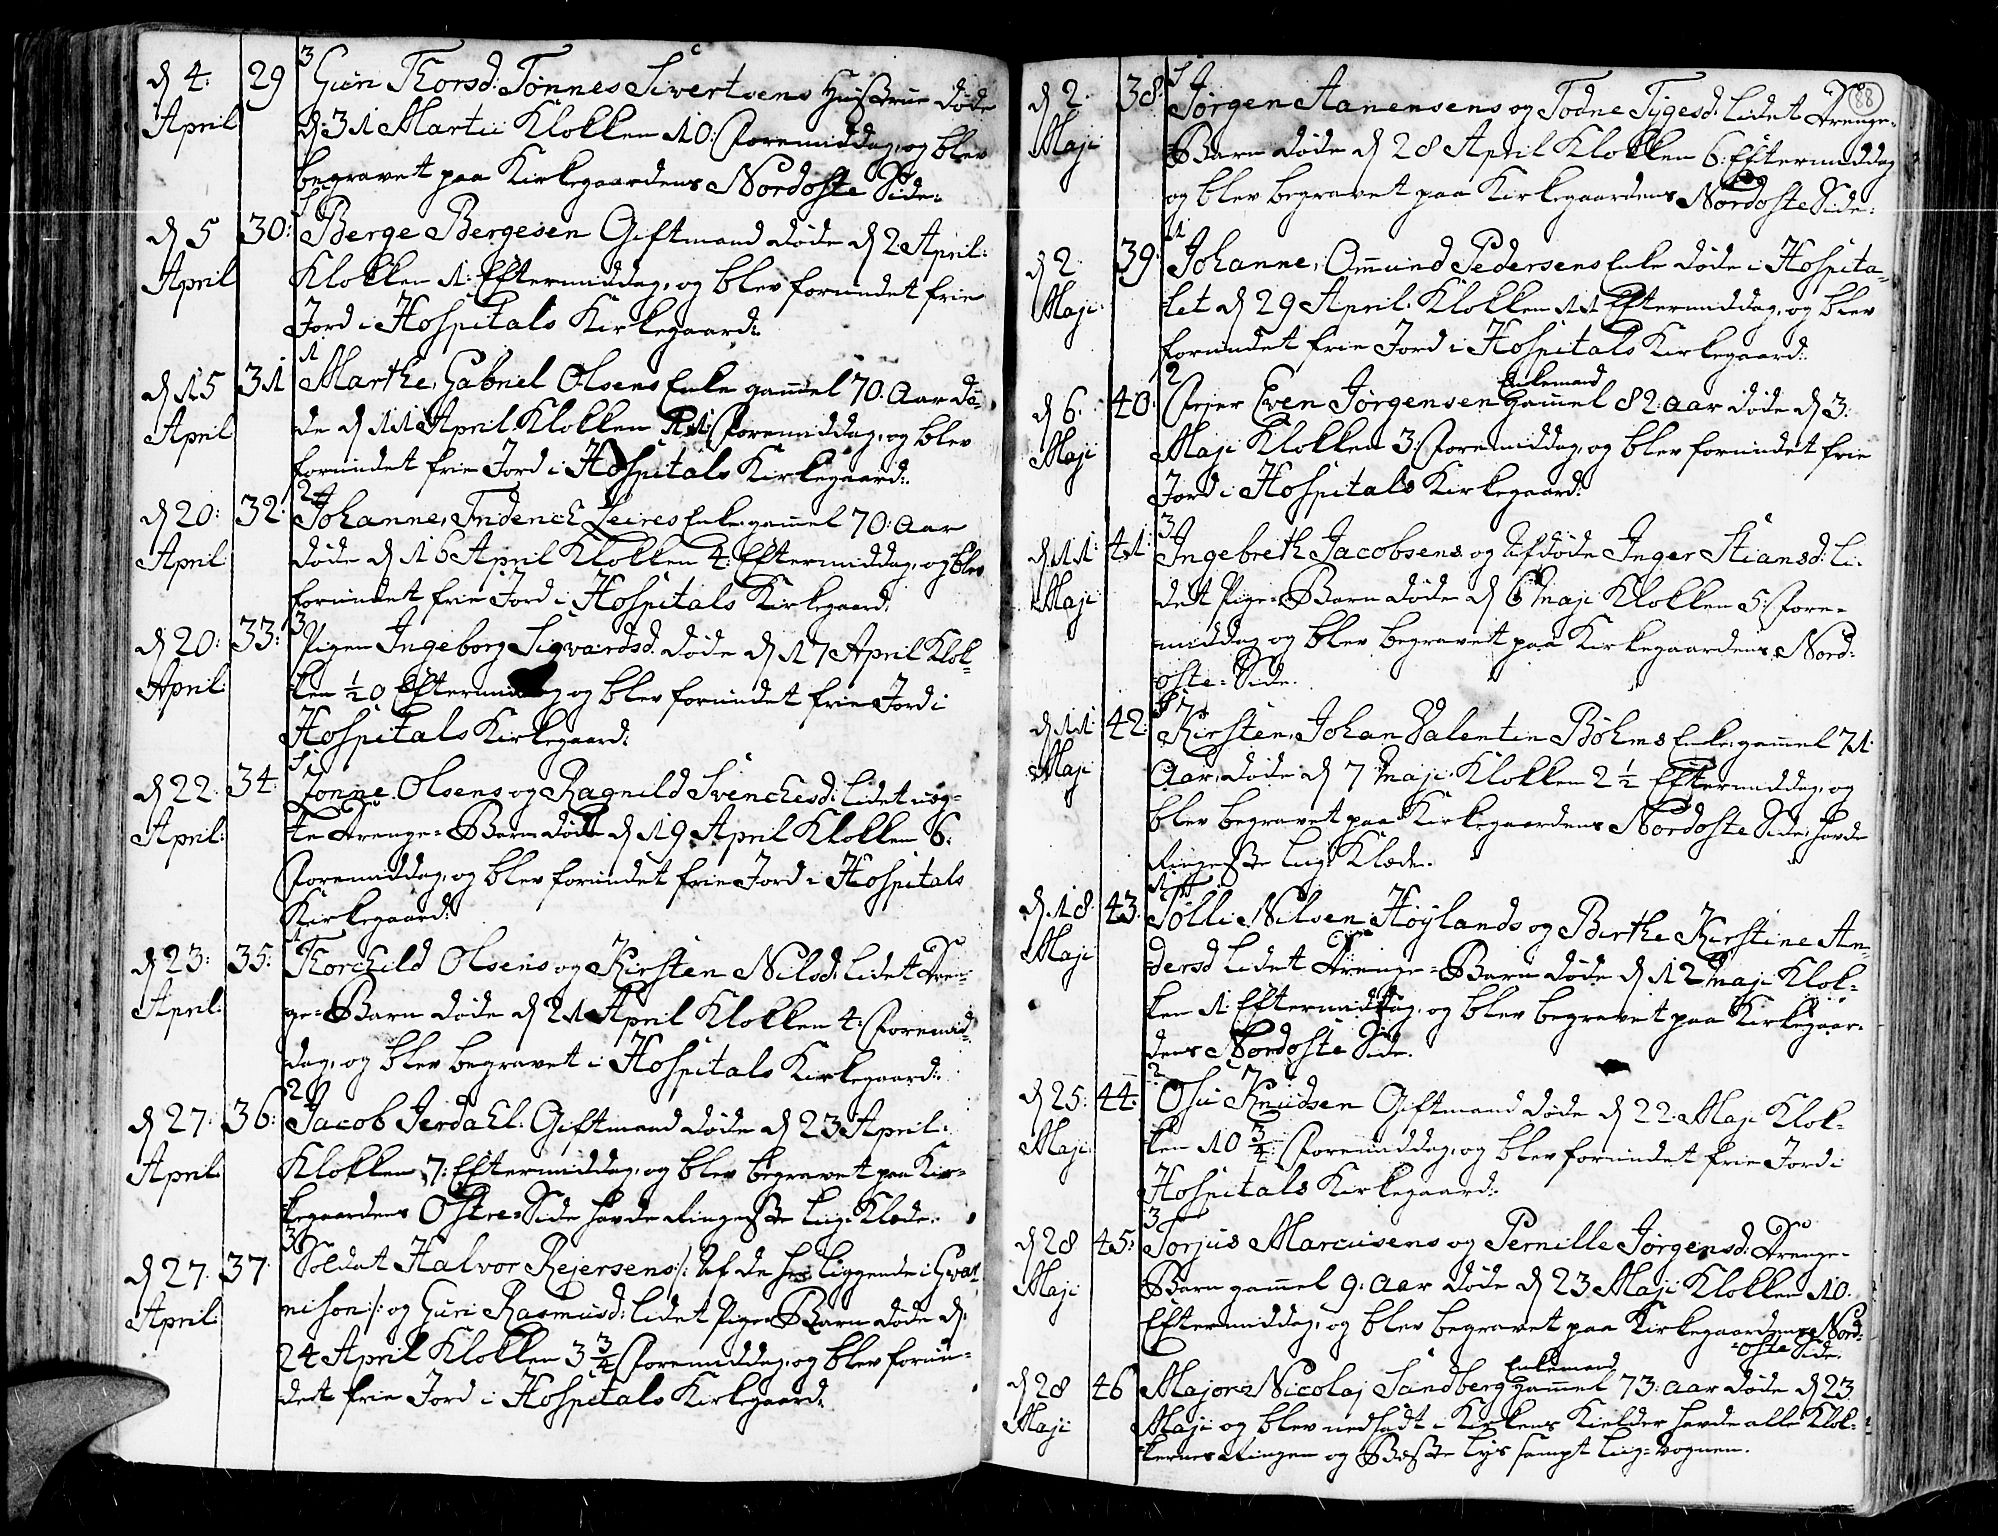 d 4: April 29 3 Guri Thorsd: Tønnes Sivertsens Hustrue døde
d: 31 Martii Klokken 10: Formiddag, og blev
begravet paa Kirkegaardens Nordoste Side:
d 5 April 30: Berge Bergesen Giftmand døde d 2 April:
Klokken 1: Eftermiddag, og blev forundet frie
Jord i Hospitals Kirkegaard:
d 15 April 31 1 Marthe, Gabriel Olsens Enke gammel 70: Aar dø-
de d 11 April Klokken 11: Formiddag, og blev
forundet frie Jord i Hospitals Kirkegaard:
d 20: April 32: 2 Johanne, Friderich Enke gammel 70: Aar
døde d 16 April Klokken 4: Eftermiddag, og blev
forundet frie Jord i Hospitals Kirkegaard:
d 20: April: 33: 3 Pigen Ingeborg Sigvardsd: døde d 17 April Klok-
ken ½0 Eftermiddag og blev forundet frie Jord i
Hospitals Kirkegaard:
d 22 April: 34: Jonne Olsens og Ragnild Svenchesd: lidet uæg-
te Drenge-Barn døde d 19 April Klokken 6:
Formiddag, og blev forundet frie Jord i Hospitals
Kirkegaard:
d 23: April: 35: 1 Thorchild Olsens og Kirsten Nilsd: lidet Dren-
ge-Barn døde d 21 April Klokken 4: Formid-
dag, og blev begravet i Hospitals Kirkegaard:
d 27: April: 36: 2 Jacob Jerdahl: Giftmand døde d 23 April:
Klokken 7: Eftermiddag, og blev begravet paa Kir-
kegaardens Ostre-Side havde Liig-Klæde:
d 27: April: 37: 3 Soldat Halvor Rejersens /: Af de her liggende i Gvar-
nison :/ og Guri Rasmusd: lidet Pige-Barn døde d:
24 April Klokken 3 ¾ Formiddag, og blev forun-
det frie Jord i Hospitals Kirkegaard:
88
d 2: Maji 38: Jørgen Aanensens og Todne Tygesd: lidet Drenge-
Barn døde d 28 April Klokken 6: Eftermiddag
og blev begravet paa Kirkegaardens Nordoste Side:
d 2: Maji: 39: 1 Johanne, Ommund Pedersens Enke døde i Hospita-
let d 29 April: Klokken 11 Eftermiddag, og blev
forundet frie Jord i Hospitals Kirkegaard:
d 6: Maji 40: 2 Even Jørgensen Enkemand gammel 82: Aar døde d 3:
Maji Klokken 3: Formiddag, og blev forundet frie
Jord i Hospitals Kirkegaard:
d 11: Maji 41: 3 Ingebreth Jacobsens og Afdøde Inger Stiansd: li-
det Pige-Barn døde d 6 Maji Klokken 5: For-
middag og blev begravet paa Kirkegaardens Nord-
oste-Side.
d 11: Maji 42: Kirsten, Johan Valentin Bøhms Enke, gammel 71:
Aar, døde d 7 Maji: Klokken 2 ½ Eftermiddag, og
blev begravet paa Kirkegaardens Nordoste Side, havde
Liig-Klæde.
d 18: Maji 43: 1 Tølli Nilsen Høylands og Birthe Kirstine An-
dersd lidet Drenge-Barn døde d 12 Maji Klok-
ken 1: Eftermiddag, og blev begravet paa Kirkegaar-
dens Nordoste Side.
d 25: Maji: 44: 2 Osu Knudsen Giftmand døde d 22: Maji Klok-
ken 10 ¾: Formiddag, og blev forundet frie Jord i
Hospitals Kirkegaard:
d 28 Maji 45: 3 Torjus Marcusens og Pernille Jørgensd: Drenge-
Barn gammel 9: Aar døde d 23 Maji Klokken 10:
Eftermiddag, og blev begravet paa Kirkegaardens Nord-
oste Side.
d 28 Maji 46 Major Nicolaj Sundberg Enkemand gammel 73: Aar døde d 23
Maji og blev nedsadt i Kirkens Kielder havde alle Klok-
kernes Ringen og Beste Lys sampt Liig-Vognen.